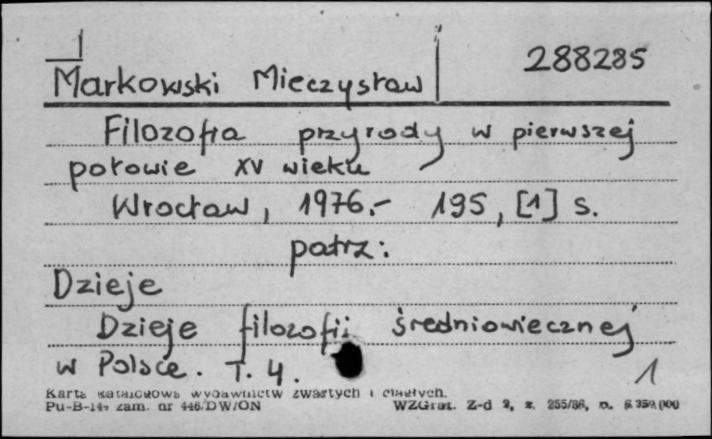 288285
Markowski Mieczysław
Filozofia przyrody w pierwszej
połowie XV wieku
Wrocław, 1976.- 195, [1] s.
patrz:
Dzieje
Dzieje filozofii średniowiecznej
w Polsce. T. 4.
1
Karta katalogowa wydawnictw zwartych i ciągłych.
Pu-B-14 zam. nr 446/DW/ON WZGraf. Z-d 2, z. 255/86, n.